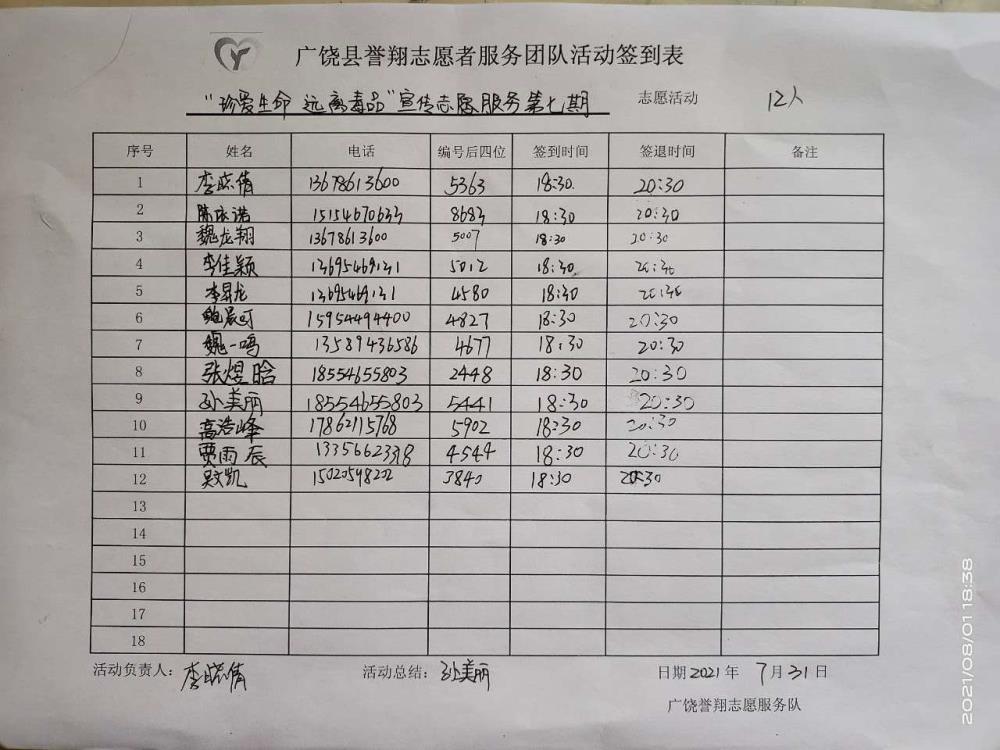 广饶县誉翔志愿者服务团队活动签到表
"珍爱生命 远离毒品"宣传志愿服务第七期 志愿活动 12人
序号 姓名 电话 编号后四位 签到时间 签退时间 备注
1 李晓倩 13678613600 5363 18:30 20:30
2 陈依诺 15154670633 8683 18:30 20:30
3 魏龙翔 13678613600 5007 18:30 20:30
4 李佳颖 13695469131 5012 18:30 20:30
5 李昇龙 13695469131 4580 18:30 20:30
6 鲍晨可 15954494400 4827 18:30 20:30
7 魏一鸣 13589436586 4677 18:30 20:30
8 张煜晗 18554655803 2448 18:30 20:30
9 孙美丽 18554655803 5441 18:30 20:30
10 高浩峰 17862115768 5902 18:30 20:30
11 贾雨辰 13356623318 4544 18:30 20:30
12 吴文凯 15020598202 3840 18:30 20:30
13
14
15
16
17
18
活动负责人：李晓倩 活动总结：孙美丽 日期 2021 年 7 月 31 日
广饶誉翔志愿服务队
2021/08/01 18:38